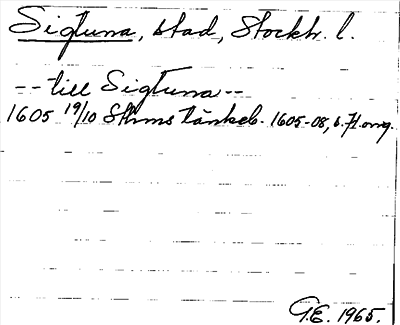 Sigtuna, stad, Stockh. l.
--till Sigtuna--
1605 19/10 Sthms tänkeb. 1605-08, s. 71 omg.
G.E. 1965.